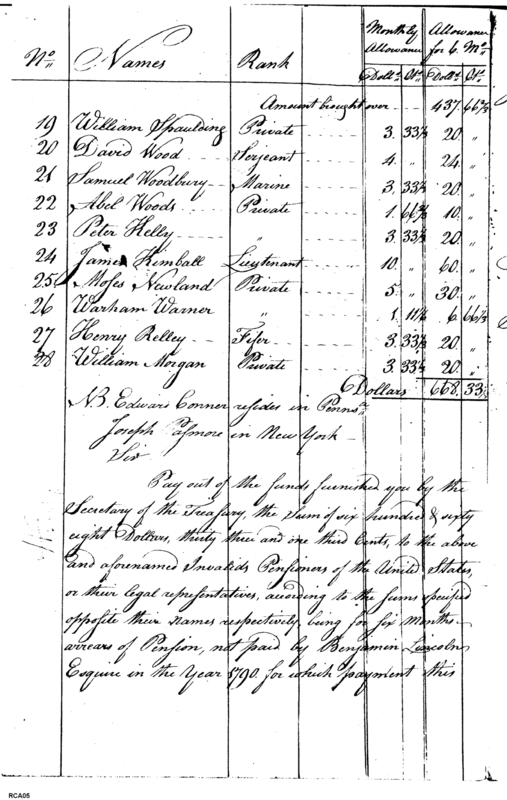 No Names Rank Monthly Allowance Allowance for 6 Mo.
Dolls. Cts. Dolls. Cts.
Amount brought over 437. 66⅔
19 William Spaulding Private 3. 33⅓ 20. "
20 David Wood Serjeant 4. " 24. "
21 Samuel Woodbury Marine 3. 33⅓ 20. "
22 Abel Woods Private 1. 66⅔ 10. "
23 Peter Kelley 3. 33⅓ 20. "
24 James Kimball Lieutenant 10. " 60. "
25 Moses Newland Private 5. " 30. "
26 Warham Warner " 1. 11⅑ 6. 66⅔
27 Henry Kelley Fifer 3. 33⅓ 20. "
28 William Morgan Private 3. 33⅓ 20. "
Dollars 668. 33⅓
NB. Edward Conner resides in Penns.a
Joseph Pasmore in New York
Sir
Pay out of the funds furnished you by the
Secretary of the Treasury, the Sum of six hundred & sixty
eight Dollars, thirty three and one third Cents, to the above
and aforenamed Invalids Pensioners of the United States,
or their legal representatives, according to the sums specified
opposite their names respectively, being for six Months
arrears of Pension, not paid by Benjamin Lincoln
Esquire in the Year 1790. for which payment this
RCA05